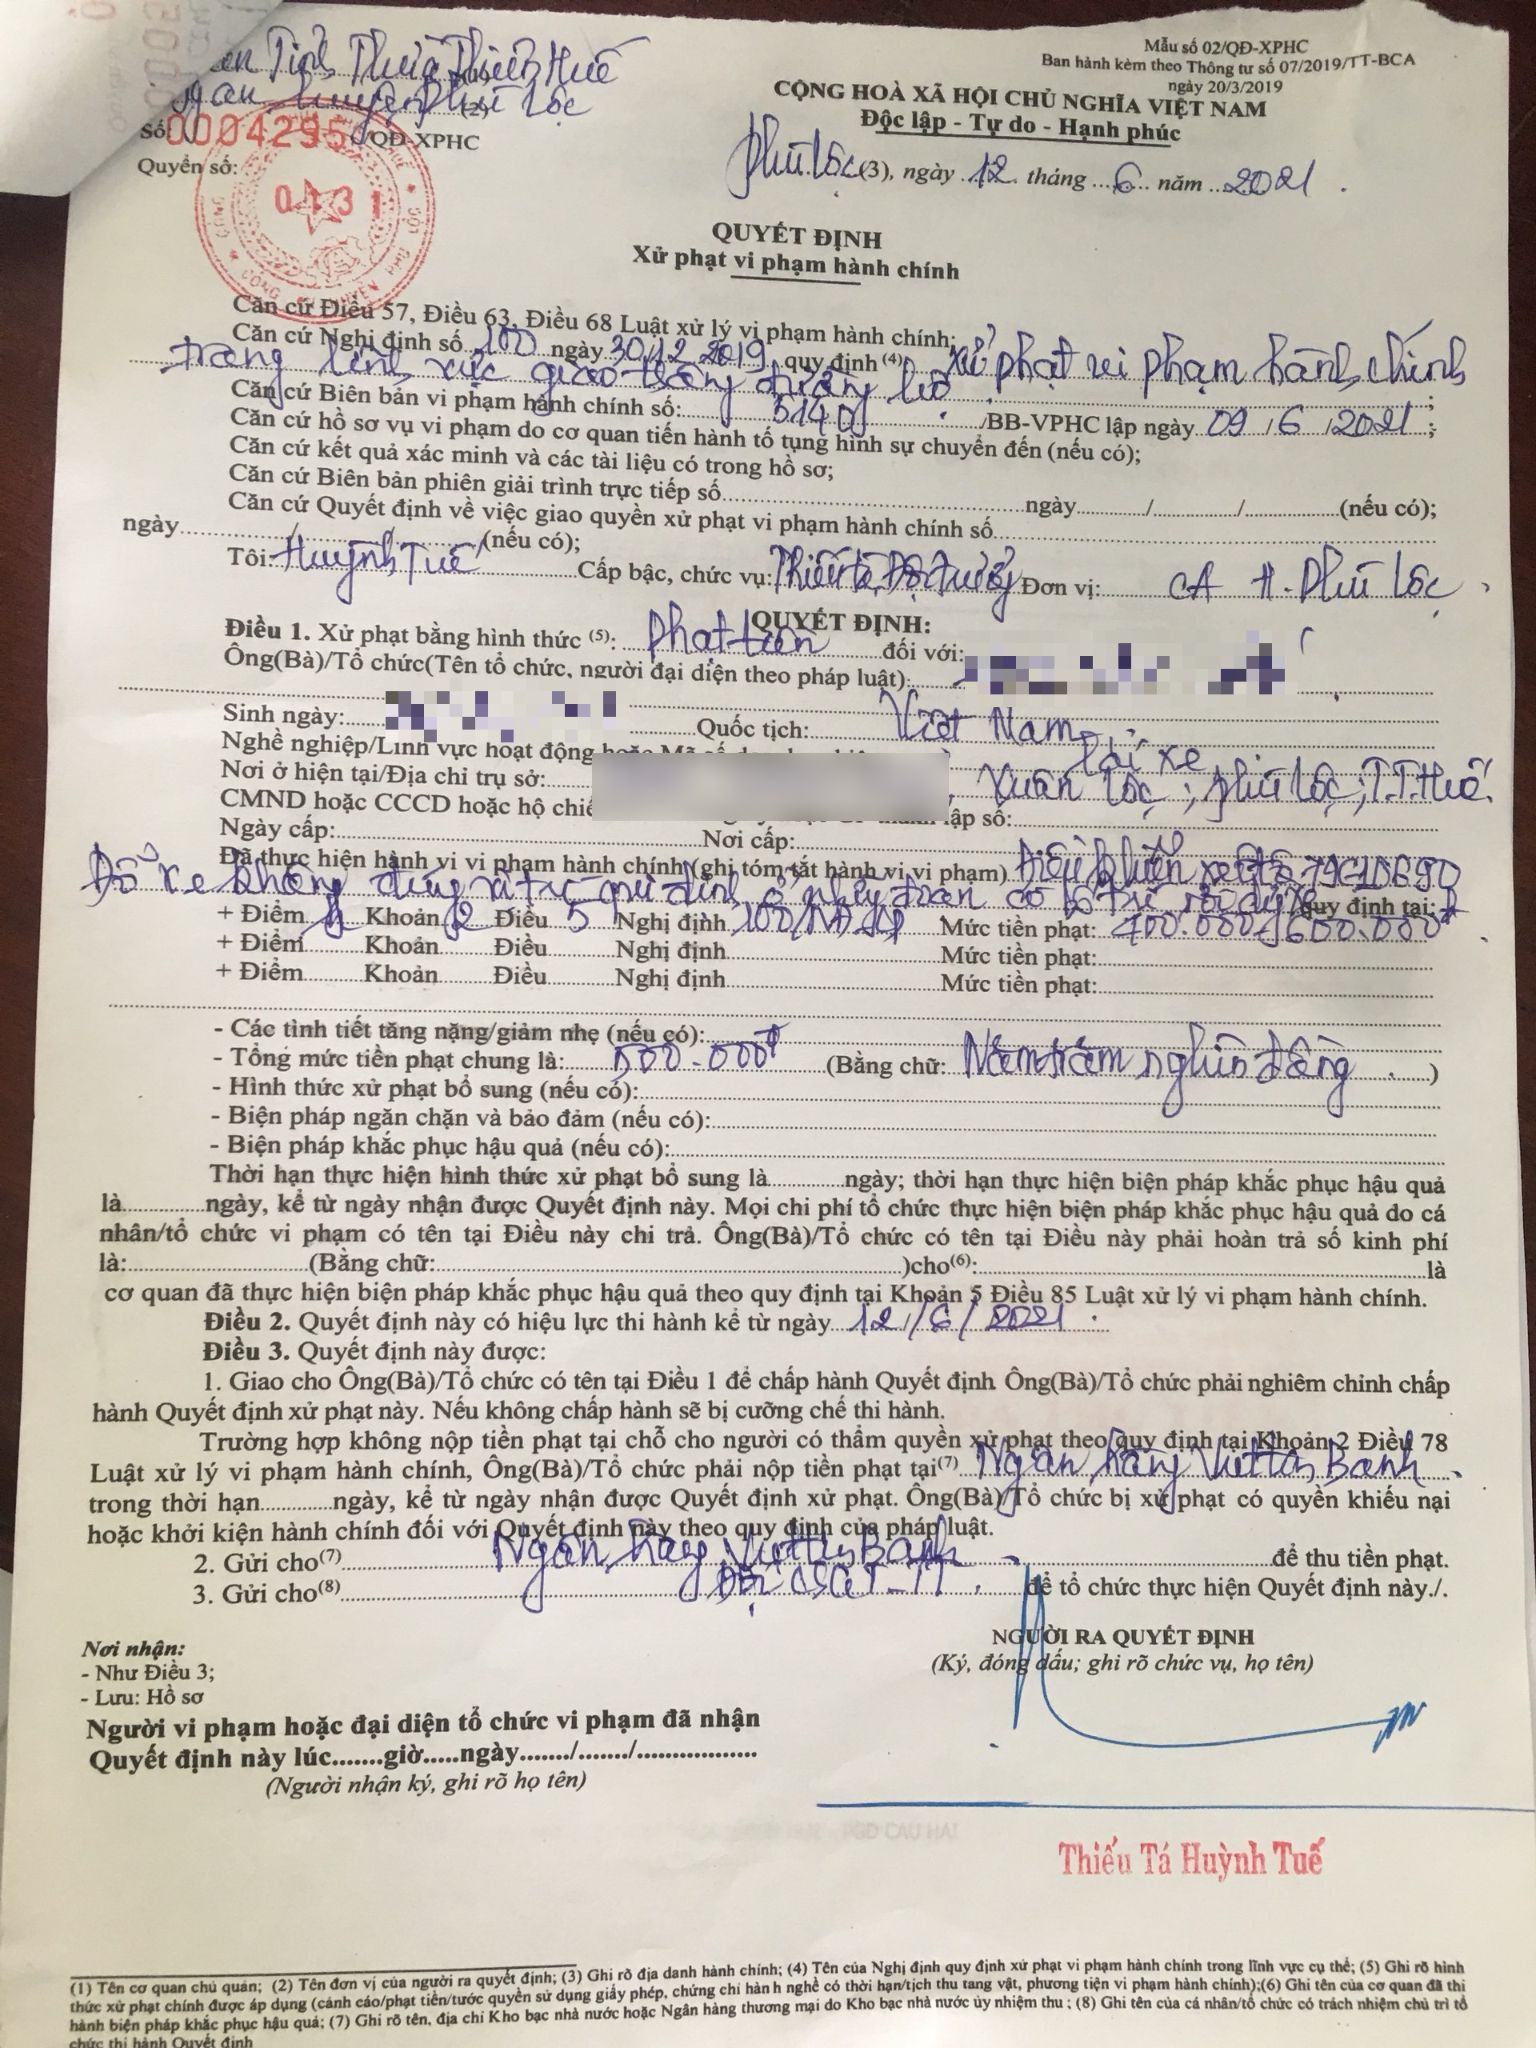 Mẫu số 02/QĐ-XPHC
Ban hành kèm theo Thông tư số 07/2019/TT-BCA
ngày 20/3/2019
Tỉnh Thừa Thiên Huế
huyện Phú Lộc
(2)
Số: 0004295 /QĐ-XPHC
Quyển số: 0131
CỘNG HOÀ XÃ HỘI CHỦ NGHĨA VIỆT NAM
Độc lập - Tự do - Hạnh phúc
Phú Lộc (3), ngày 12 tháng 6 năm 2021
QUYẾT ĐỊNH
Xử phạt vi phạm hành chính
Căn cứ Điều 57, Điều 63, Điều 68 Luật xử lý vi phạm hành chính;
Căn cứ Nghị định số 100 ngày 30/12/2019 quy định (4) xử phạt vi phạm hành chính
trong lĩnh vực giao thông đường bộ ;
Căn cứ Biên bản vi phạm hành chính số: 5140 /BB-VPHC lập ngày 09/6/2021;
Căn cứ hồ sơ vụ vi phạm do cơ quan tiến hành tố tụng hình sự chuyển đến (nếu có);
Căn cứ kết quả xác minh và các tài liệu có trong hồ sơ;
Căn cứ Biên bản phiên giải trình trực tiếp số.......ngày......./......./.......(nếu có);
Căn cứ Quyết định về việc giao quyền xử phạt vi phạm hành chính số.......
ngày.......(nếu có);
Tôi: Huỳnh Tuế Cấp bậc, chức vụ: Thiếu tá, Đội trưởng Đơn vị: CA H. Phú Lộc
QUYẾT ĐỊNH:
Điều 1. Xử phạt bằng hình thức (5): Phạt tiền đối với:
Ông(Bà)/Tổ chức(Tên tổ chức, người đại diện theo pháp luật):
Sinh ngày: Quốc tịch: Việt Nam
Nghề nghiệp/Lĩnh vực hoạt động Lái xe
Nơi ở hiện tại/Địa chỉ trụ sở: Xuân Lộc; Phú Lộc; T.T.Huế.
CMND hoặc CCCD hoặc hộ chiế lập số:
Ngày cấp:.......Nơi cấp:.......
Đã thực hiện hành vi vi phạm hành chính (ghi tóm tắt hành vi vi phạm) Điều khiển xe ôtô
Đỗ xe không đúng vị trí quy định ở những đoạn có bố trí quy định tại:
+ Điểm h Khoản 2 Điều 5 Nghị định 100/NĐ-CP Mức tiền phạt: 400.000đ-600.000đ
+ Điểm.......Khoản.......Điều.......Nghị định.......Mức tiền phạt:.......
+ Điểm.......Khoản.......Điều.......Nghị định.......Mức tiền phạt:.......
- Các tình tiết tăng nặng/giảm nhẹ (nếu có):
- Tổng mức tiền phạt chung là: 500.000đ (Bằng chữ: Năm trăm nghìn đồng .)
- Hình thức xử phạt bổ sung (nếu có):
- Biện pháp ngăn chặn và bảo đảm (nếu có):
- Biện pháp khắc phục hậu quả (nếu có):
Thời hạn thực hiện hình thức xử phạt bổ sung là.......ngày; thời hạn thực hiện biện pháp khắc phục hậu quả
là.......ngày, kể từ ngày nhận được Quyết định này. Mọi chi phí tổ chức thực hiện biện pháp khắc phục hậu quả do cá
nhân/tổ chức vi phạm có tên tại Điều này chi trả. Ông(Bà)/Tổ chức có tên tại Điều này phải hoàn trả số kinh phí
là:.......(Bằng chữ:.......)cho(6):.......là
cơ quan đã thực hiện biện pháp khắc phục hậu quả theo quy định tại Khoản 5 Điều 85 Luật xử lý vi phạm hành chính.
Điều 2. Quyết định này có hiệu lực thi hành kể từ ngày 12/6/2021.
Điều 3. Quyết định này được:
1. Giao cho Ông(Bà)/Tổ chức có tên tại Điều 1 để chấp hành Quyết định Ông(Bà)/Tổ chức phải nghiêm chỉnh chấp
hành Quyết định xử phạt này. Nếu không chấp hành sẽ bị cưỡng chế thi hành.
Trường hợp không nộp tiền phạt tại chỗ cho người có thẩm quyền xử phạt theo quy định tại Khoản 2 Điều 78
Luật xử lý vi phạm hành chính, Ông(Bà)/Tổ chức phải nộp tiền phạt tại(7) Ngân hàng ViettinBanh
trong thời hạn.......ngày, kể từ ngày nhận được Quyết định xử phạt. Ông(Bà)/Tổ chức bị xử phạt có quyền khiếu nại
hoặc khởi kiện hành chính đối với Quyết định này theo quy định của pháp luật.
2. Gửi cho(7) Ngân hàng ViettinBanh để thu tiền phạt.
3. Gửi cho(8) Đội CSGT-TT để tổ chức thực hiện Quyết định này./.
Nơi nhận:
- Như Điều 3;
- Lưu: Hồ sơ
Người vi phạm hoặc đại diện tổ chức vi phạm đã nhận
Quyết định này lúc.......giờ.....ngày......./......./.......
(Người nhận ký, ghi rõ họ tên)
NGƯỜI RA QUYẾT ĐỊNH
(Ký, đóng dấu; ghi rõ chức vụ, họ tên)
PGD CAU HAI
Thiếu Tá Huỳnh Tuế
(1) Tên cơ quan chủ quản; (2) Tên đơn vị của người ra quyết định; (3) Ghi rõ địa danh hành chính; (4) Tên của Nghị định quy định xử phạt vi phạm hành chính trong lĩnh vực cụ thể; (5) Ghi rõ hình
thức xử phạt chính được áp dụng (cảnh cáo/phạt tiền/tước quyền sử dụng giấy phép, chứng chỉ hành nghề có thời hạn/tịch thu tang vật, phương tiện vi phạm hành chính);(6) Ghi tên của cơ quan đã thi
hành biện pháp khắc phục hậu quả; (7) Ghi rõ tên, địa chỉ Kho bạc nhà nước hoặc Ngân hàng thương mại do Kho bạc nhà nước ủy nhiệm thu ; (8) Ghi tên của cá nhân/tổ chức có trách nhiệm chủ trì tổ
chức thi hành Quyết định